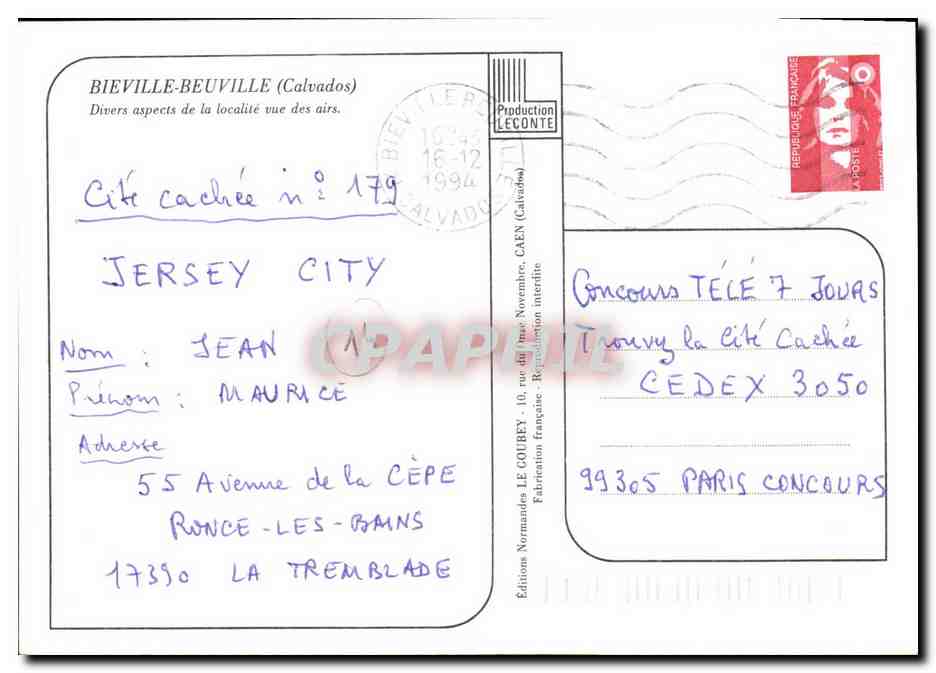 BIEVILLE-BEUVILLE (Calvados)
Divers aspects de la localité vue des airs.
Cité cachée n° 179
JERSEY CITY
Nom : JEAN
Prénom : MAURICE
Adresse
55 Avenue de la CÈPE
RONCE-LES-BAINS
17390 LA TREMBLADE
Production
LECONTE
Éditions Normandes LE GOUBEY - 10, rue du Onze Novembre, CAEN (Calvados)
Fabrication française - Reproduction interdite
16-12
1994
CALVADOS
RÉPUBLIQUE FRANÇAISE
LA POSTE
Concours TÉLÉ 7 JOURS
Trouvez la Cité Cachée
CEDEX 3050
99305 PARIS CONCOURS
CPAPHIL